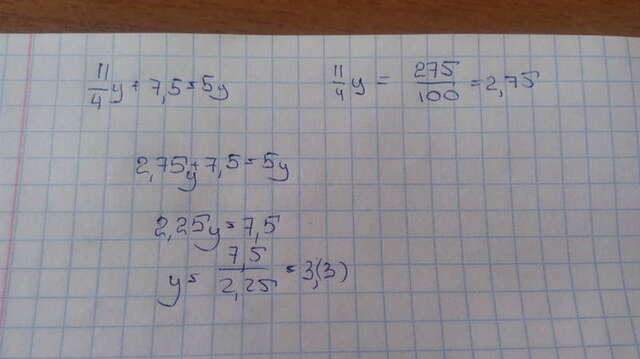 11/4 y + 7,5 = 5y
11/4 y = 275/100 = 2,75
2,75y + 7,5 = 5y
2,25y = 7,5
y = 7,5/2,25 = 3,(3)